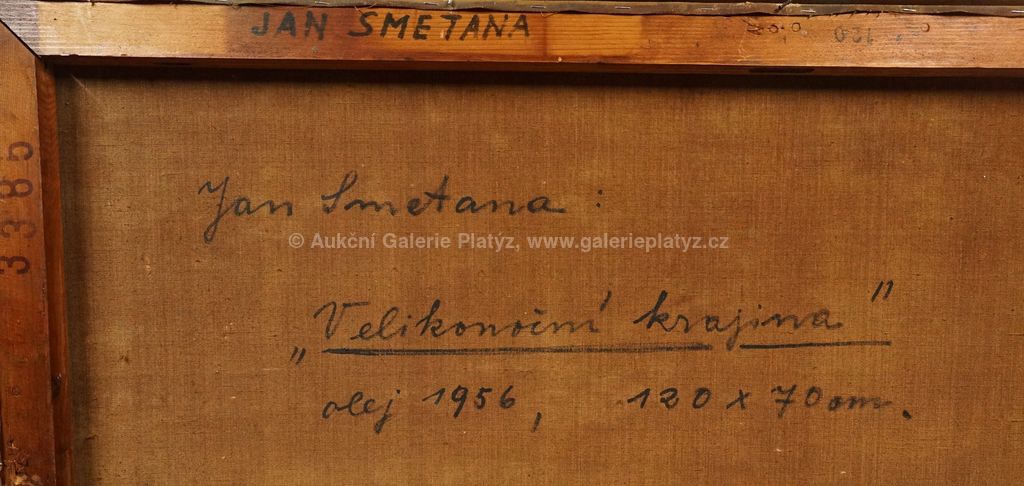 JAN SMETANA
120
3385
Jan Smetana :
© Aukční Galerie Platýz, www.galerieplatyz.cz
„Velikonoční krajina"
olej 1956, 120 x 70 cm.